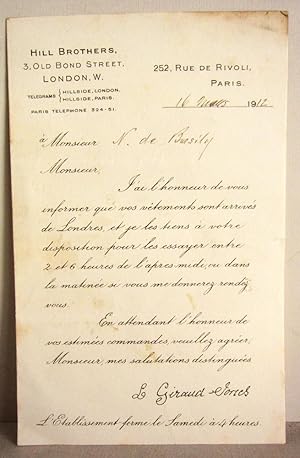 HILL BROTHERS,
3, OLD BOND STREET,
LONDON, W.
TELEGRAMS { HILLSIDE, LONDON.
HILLSIDE, PARIS.
PARIS TELEPHONE 324-51.
252, RUE DE RIVOLI,
PARIS.
16 Mars 1912
à Monsieur N. de Basily
Monsieur,
J'ai l'honneur de vous
informer que vos vêtements sont arrivés
de Londres, et je les tiens à votre
disposition pour les essayer entre
2 et 6 heures de l'après midi, ou dans
la matinée si vous me donnerez rendez
vous.
En attendant l'honneur de
vos estimées commandes, veuillez agréer,
Monsieur, mes salutations distinguées
Giraud
L'Etablissement ferme le Samedi à 4 heures.